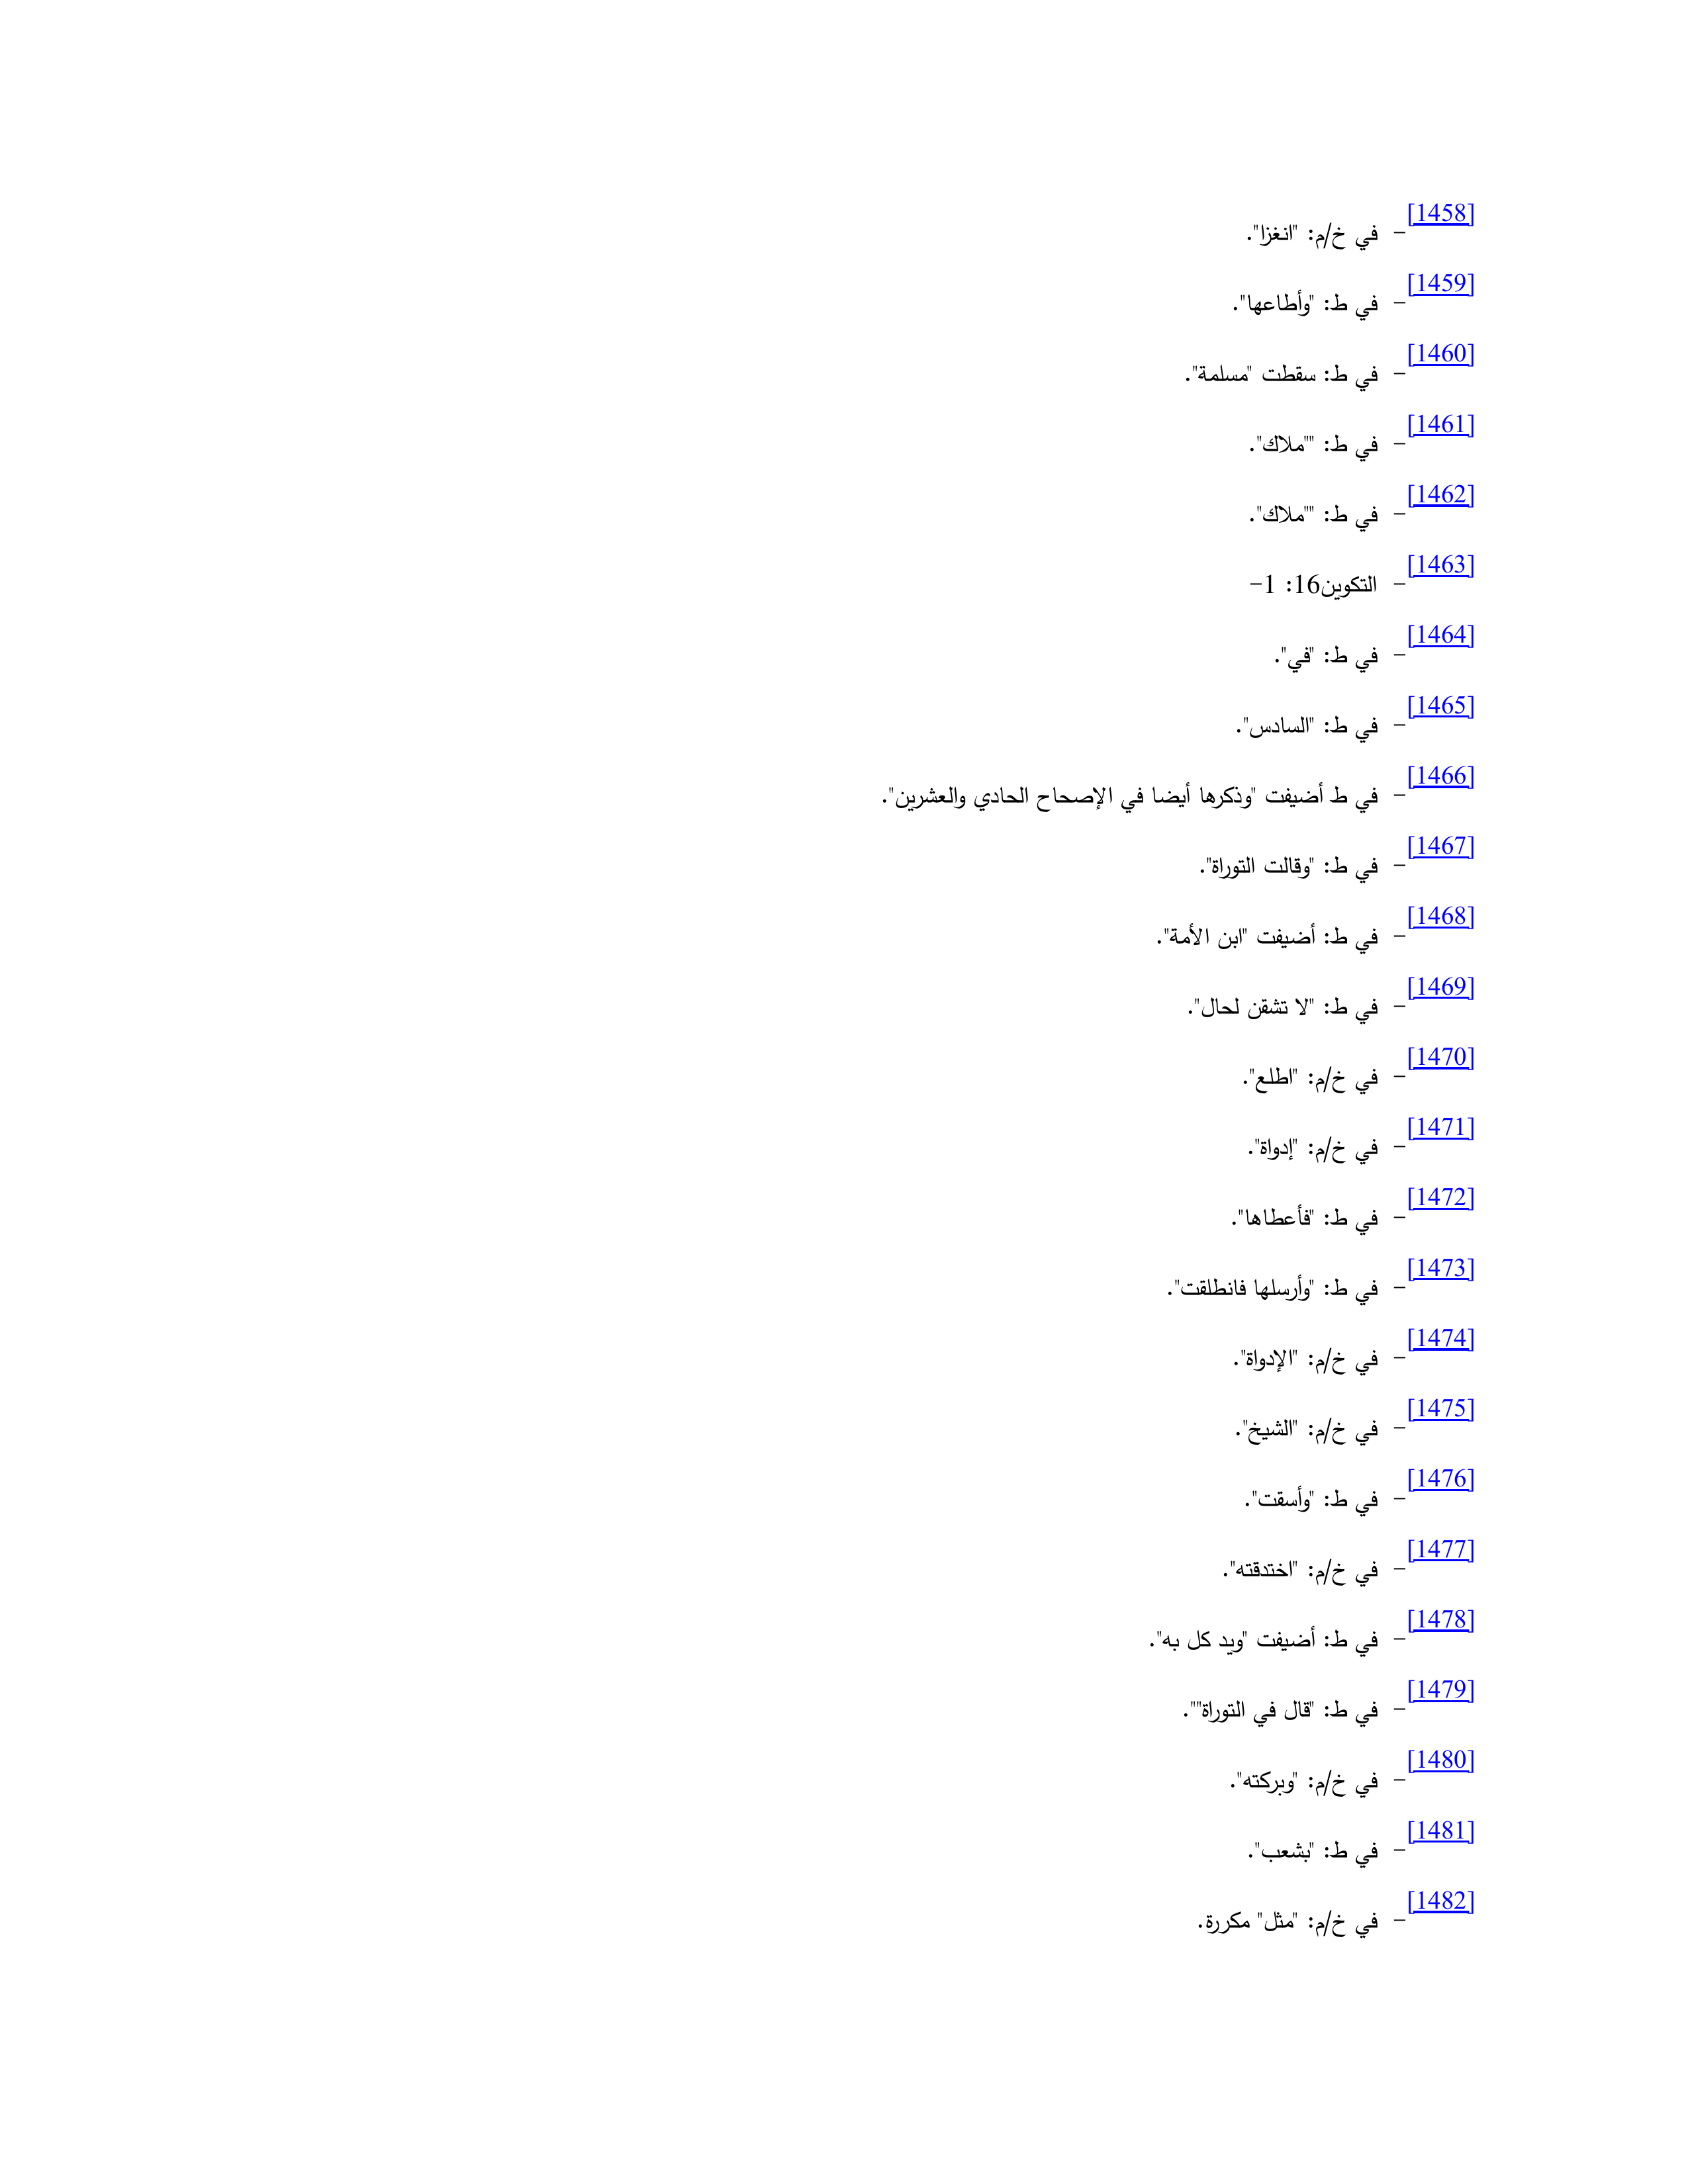 [1458] - في خ/م: "انغزا".
[1459] - في ط: "وأطاعها".
[1460] - في ط: سقطت "مسلمة".
[1461] - في ط: ""ملاك".
[1462] - في ط: ""ملاك".
[1463] - التكوين16: 1-
[1464] - في ط: "في".
[1465] - في ط: "السادس".
[1466] - في ط أضيفت "وذكرها أيضا في الإصحاح الحادي والعشرين".
[1467] - في ط: "وقالت التوراة".
[1468] - في ط: أضيفت "ابن الأمة".
[1469] - في ط: "لا تشقن لحال".
[1470] - في خ/م: "اطلع".
[1471] - في خ/م: "إدواة".
[1472] - في ط: "فأعطاها".
[1473] - في ط: "وأرسلها فانطلقت".
[1474] - في خ/م: "الإدواة".
[1475] - في خ/م: "الشيخ".
[1476] - في ط: "وأسقت".
[1477] - في خ/م: "اختدقته".
[1478] - في ط: أضيفت "ويد كل به".
[1479] - في ط: "قال في التوراة"".
[1480] - في خ/م: "وبركته".
[1481] - في ط: "بشعب".
[1482] - في خ/م: "مثل" مكررة.